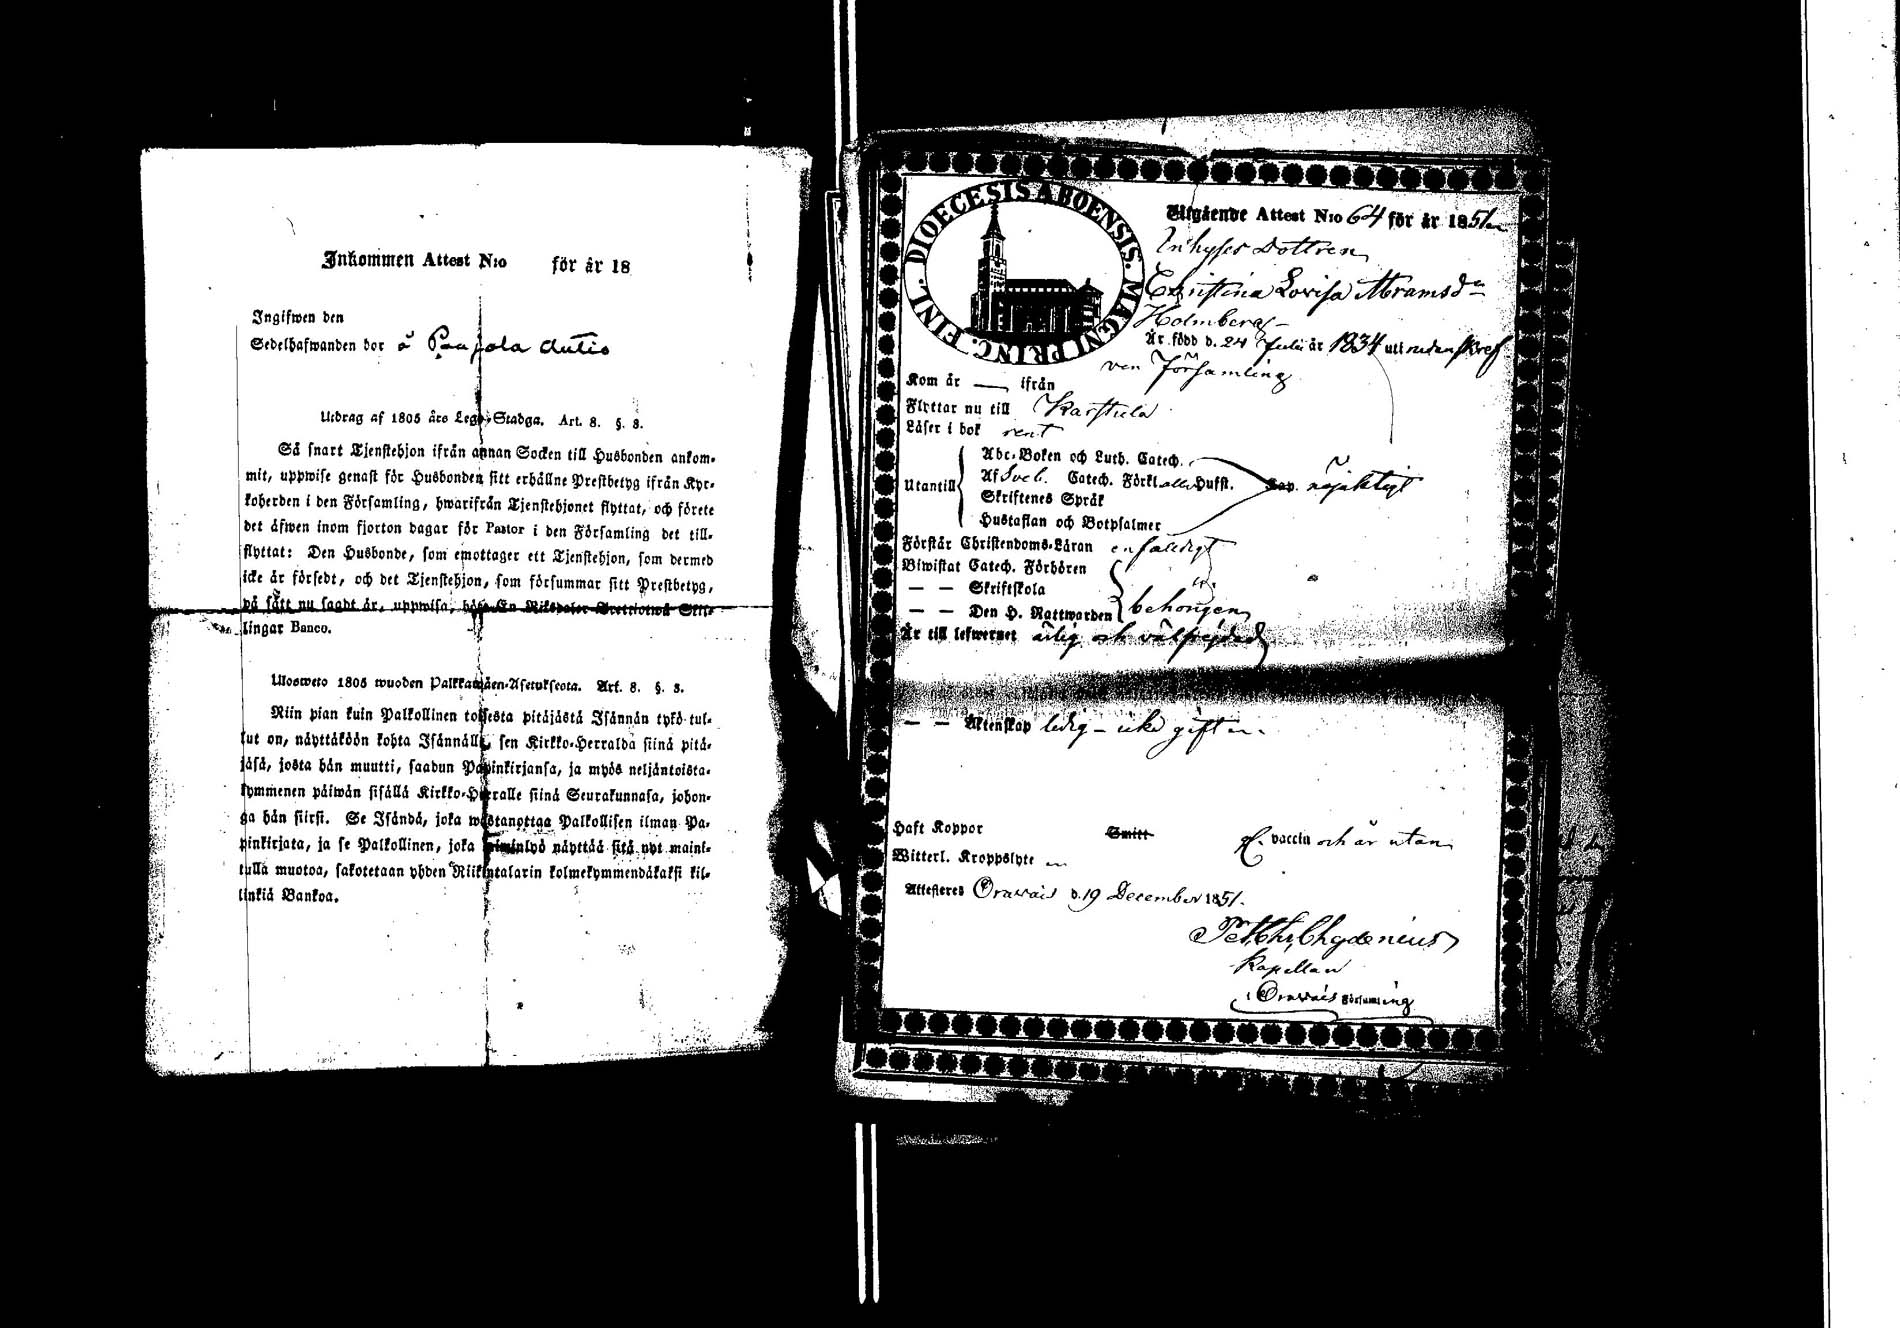 Inkommen Attest N:o för år 18
Ingifwen den
Sedelhafwanden bor å autio
Utdrag af 1805 års Lego-Stadga. Art. 8. §. 8.
Så snart Tjenstehjon ifrån annan Socken till Husbonden ankom-
mit, uppwise genast för Husbonden sitt erhållne Prestbetyg ifrån Kyr-
koherden i den Församling, hwarifrån Tjenstehjonet flyttat, och förete
det äfwen inom fjorton dagar för Pastor i den Församling det till-
flyttat: Den Husbonde, som emottager ett Tjenstehjon, som dermed
icke är försedt, och det Tjenstehjon, som försummar sitt Prestbetyg,
på sätt nu sagdt är, uppwisa, böte En Riksdaler Trettiotwå Skil-
lingar Banco.
Ulosweto 1805 wuoden Palkkawäen-Asetuksesta. Art. 8. §. 8.
Niin pian kuin Palkollinen toisesta pitäjästä Isännän tykö tul-
lut on, näyttäköön kohta Isännälle, sen Kirkko-Herralda siinä pitä-
jäsä, josta hän muutti, saadun Papinkirjansa, ja myös neljäntoista-
kymmenen päiwän sisällä Kirkko-Herralle siinä Seurakunnasa, johon-
ga hän siirsi. Se Isändä, joka wastanottaa Palkollisen ilman Pa-
pinkirjata, ja se Palkollinen, joka laiminlyö näyttää sitä nyt mainit-
tulla muotoa, sakotetaan yhden Riikintalarin kolmekymmendäkaksi kil-
linkiä Bankoa.
DIOECESIS ABOENSIS. MAGNI PRINC. FINL.
Utgående Attest N:o 64 för år 1851
Inhyses Dottren
Christina Lovisa Abramsdr
Holmberg
Är född d. 24 Julii år 1834 uti nedanskref
ven Församling
Kom år — ifrån
Flyttar nu till Karstula
Läser i bok rent
Utantill
Abc-Boken och Luth. Catech.
Af Sveb. Catech. Förkl. Husst.
Skriftenes Språk
Hustaflan och Botpsalmer
nöjaktigt
Förstår Christendoms-Läran enfaldigt
Biwistat Catech. Förhören
— — Skriftskola
— — Den H. Nattwarden
behörigen
Är till lefwernet ärlig och välfrejdad
— — Äktenskap ledig – icke gift
Haft Koppor Smitt vaccin och är utan
Witterl. Kroppslyte
Attesteres Orawais d. 19 December 1851.
Chydenius
Kapellan
i Orawais Församling